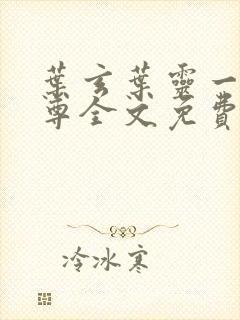 葉玄葉靈一
尊全文免費
冷冰寒